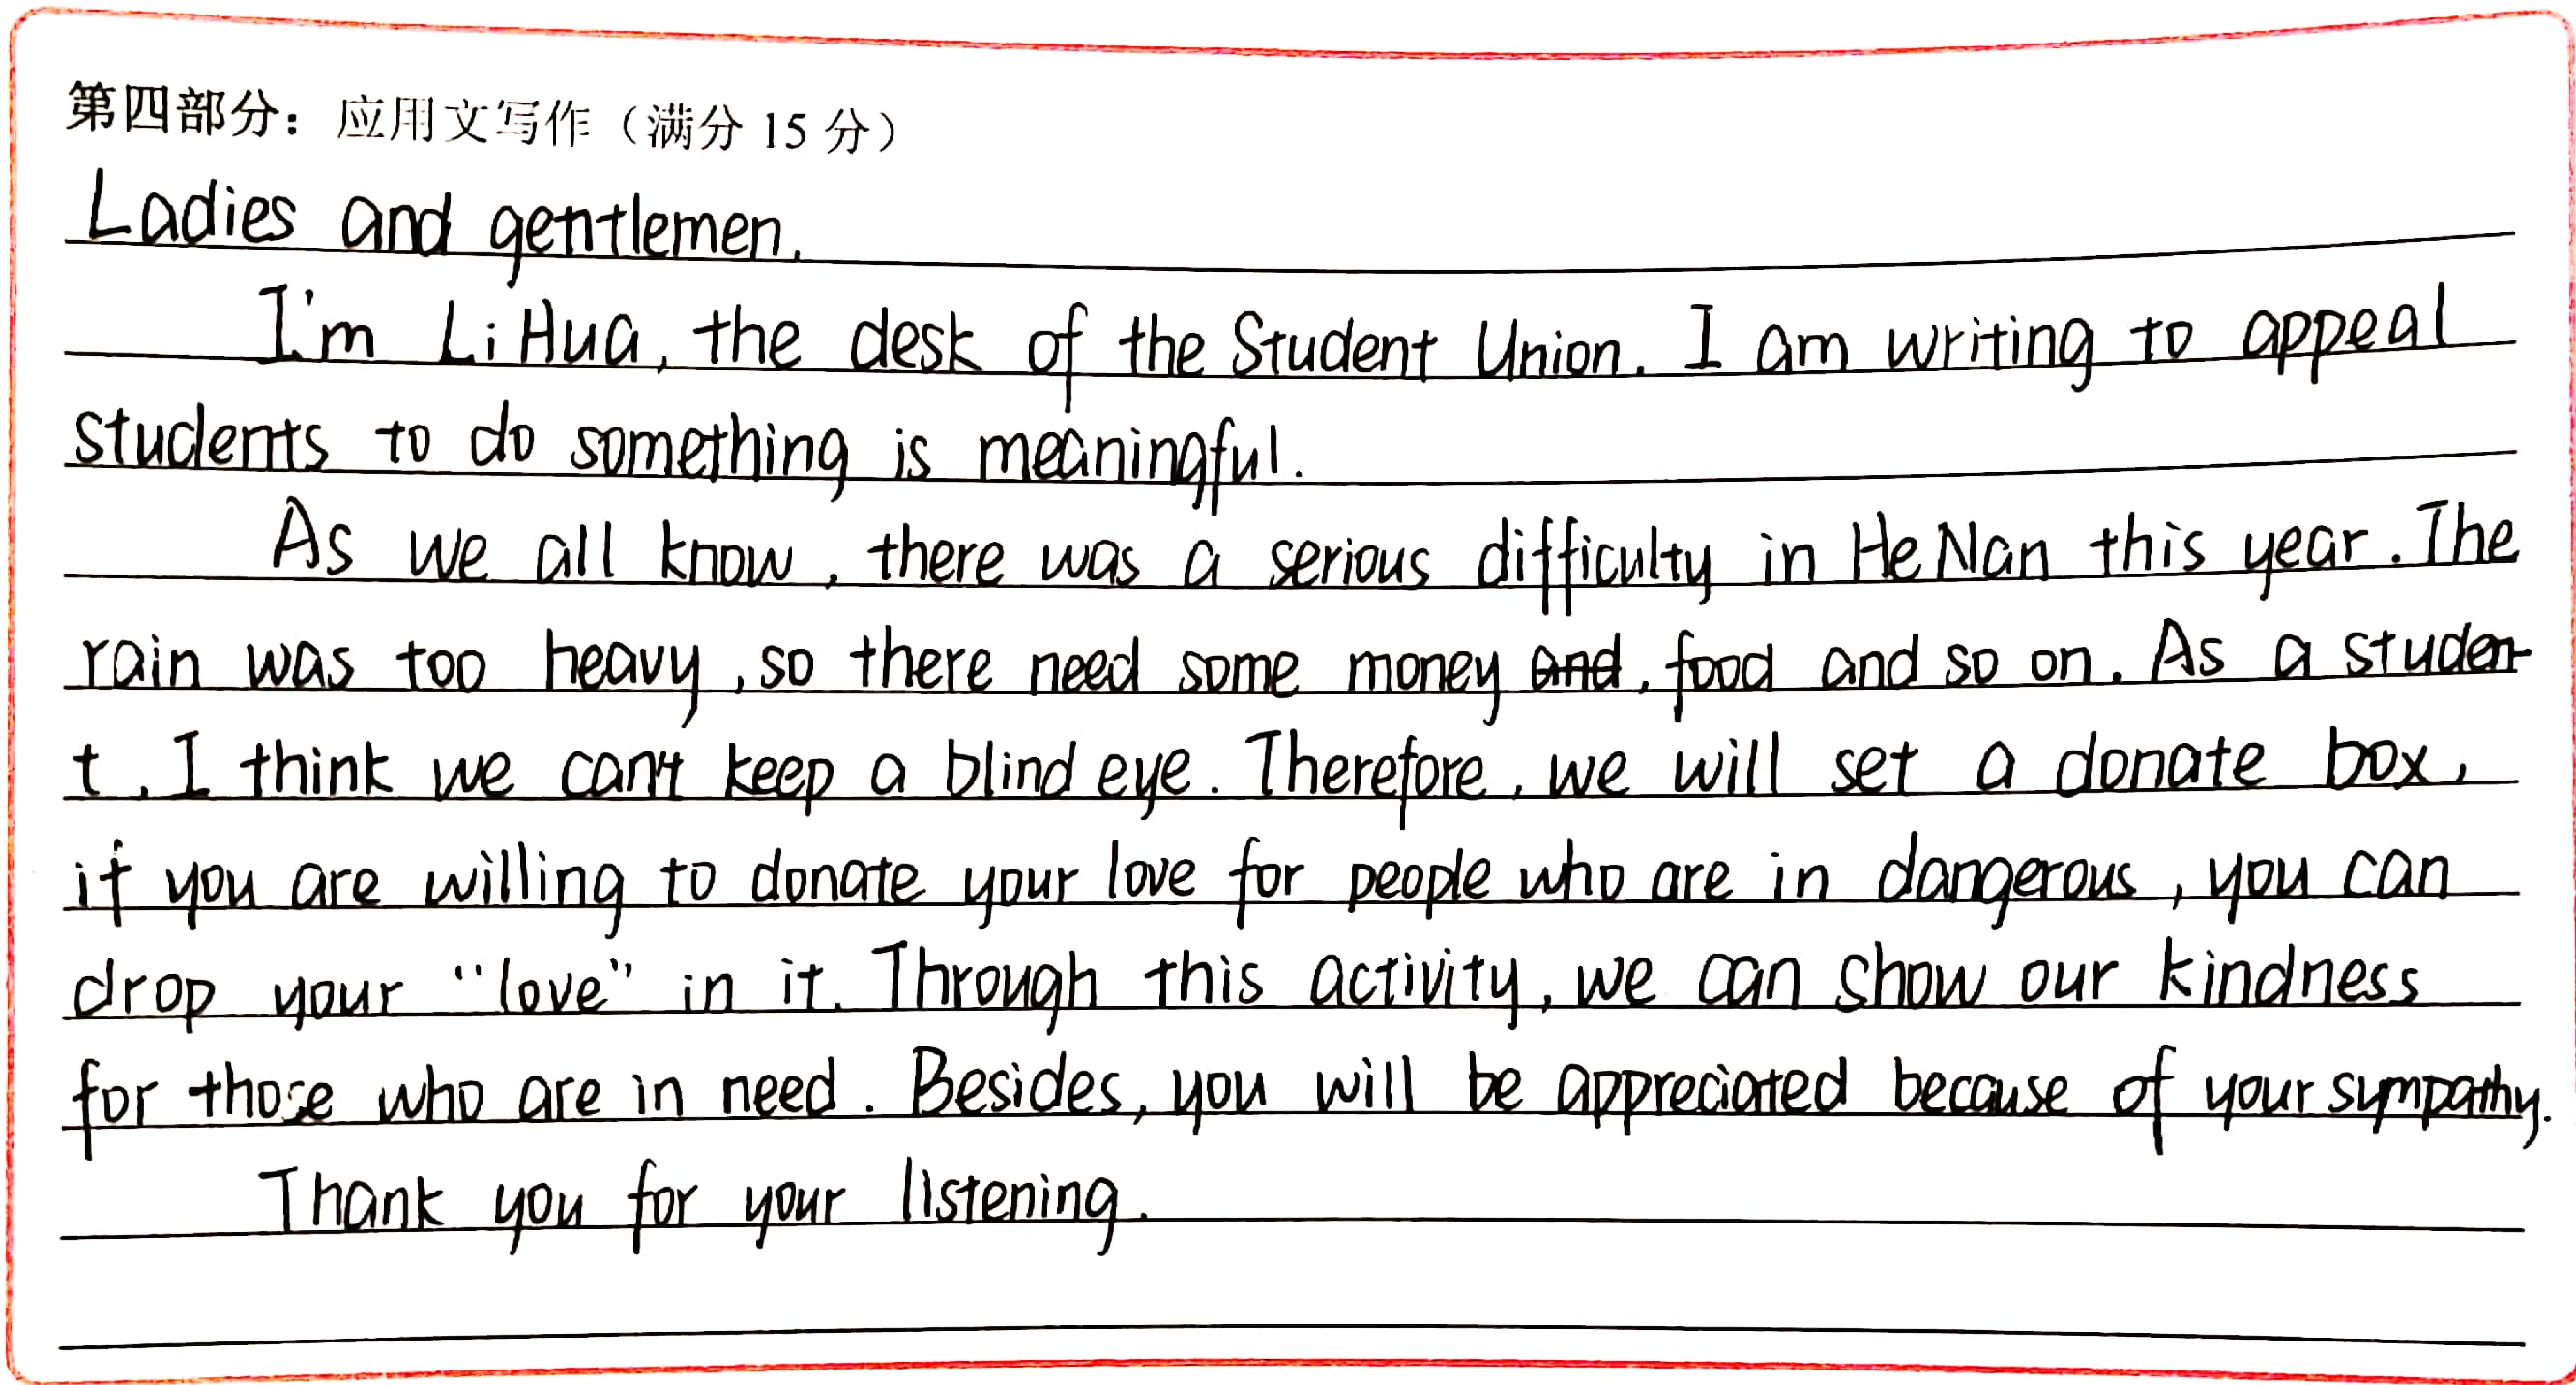 第四部分：应用文写作（满分 15 分）
Ladies and gentlemen,
I'm Li Hua, the desk of the Student Union. I am writing to appeal
students to do something is meaningful.
As we all know, there was a serious difficulty in HeNan this year. The
rain was too heavy, so there need some money and, food and so on. As a studen
t, I think we can't keep a blind eye. Therefore, we will set a donate box,
if you are willing to donate your love for people who are in dangerous, you can
drop your "love" in it. Through this activity, we can show our kindness
for those who are in need. Besides, you will be appreciated because of your sympathy.
Thank you for your listening.